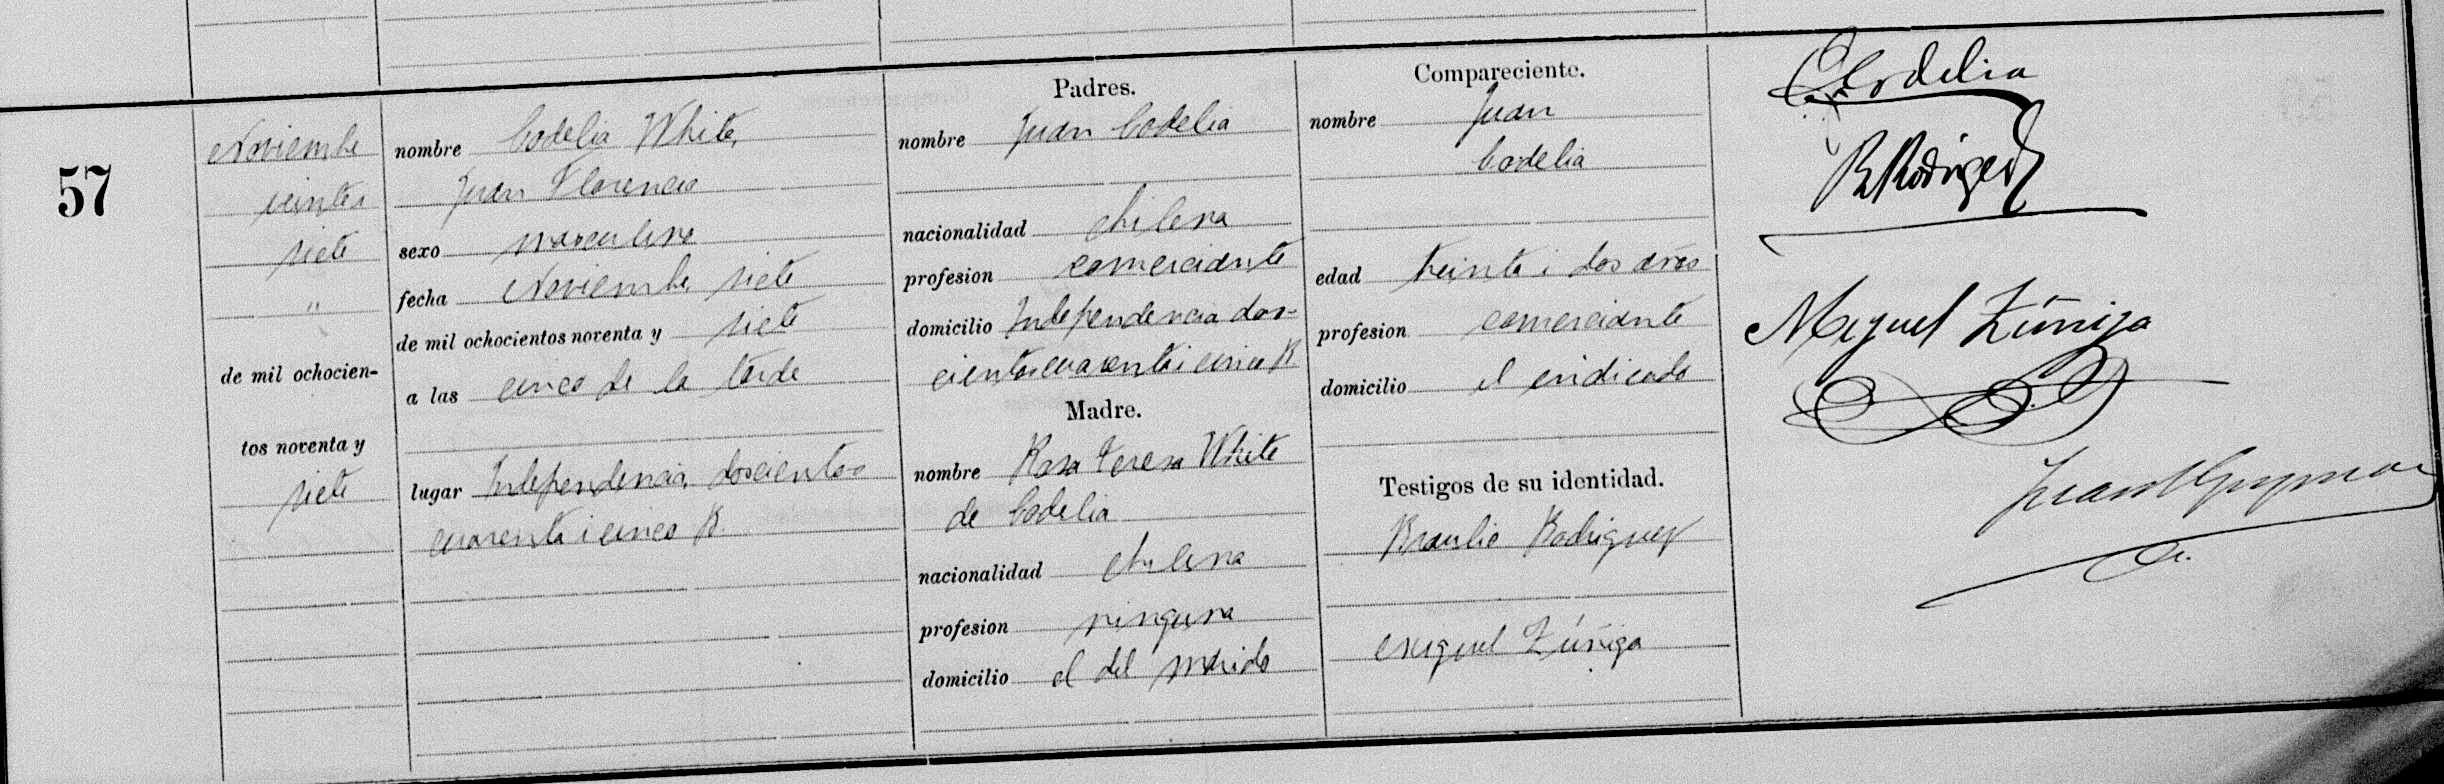 57
Noviembre
veintes
siete
"
de mil ochocien-
tos noventa y
siete
nombre Codelia White,
Juan Florencio
sexo masculino
fecha Noviembre siete
de mil ochocientos noventa y siete
a las cinco de la tarde
lugar Independencia, doscientos
cuarenta i cinco B
Padres.
nombre Juan Codelia
nacionalidad chilena
profesion comerciante
domicilio Independencia dos-
cientos cuarenta i cinco B
Madre.
nombre Rosa Teresa White
de Codelia
nacionalidad chilena
profesion ninguna
domicilio el del marido
Compareciente.
nombre Juan
Codelia
edad treinta i dos años
profesion comerciante
domicilio el indicado
Testigos de su identidad.
Braulio Rodriguez
Miguel Zúñiga
Codelia
B Rodriguez
Miguel Zúñiga
Juan Guzman